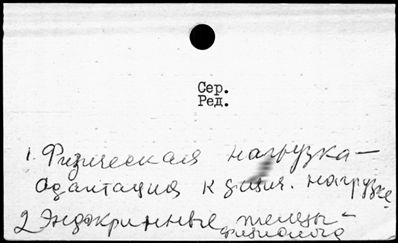 Сер.
Ред.
1. Физическая нагрузка —
адаптация к физич. нагрузке
2 Эндокринные железы —
физиология